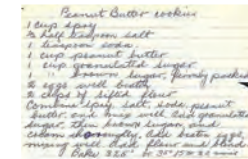 Peanut Butter cookies
1 cup spry
½ half teaspoon salt
1 teaspoon soda.
1 cup peanut butter
1 cup granulated sugar
1 " brown sugar, firmly packed
2 eggs well beaten
2 cups of sifted flour
Combine spry, salt, soda, peanut
butter, and mix well add granulated
sugar, then brown sugar, and
cream thoroughly, add beaten eggs,
mixing well add flour and
Bake 325° or 35